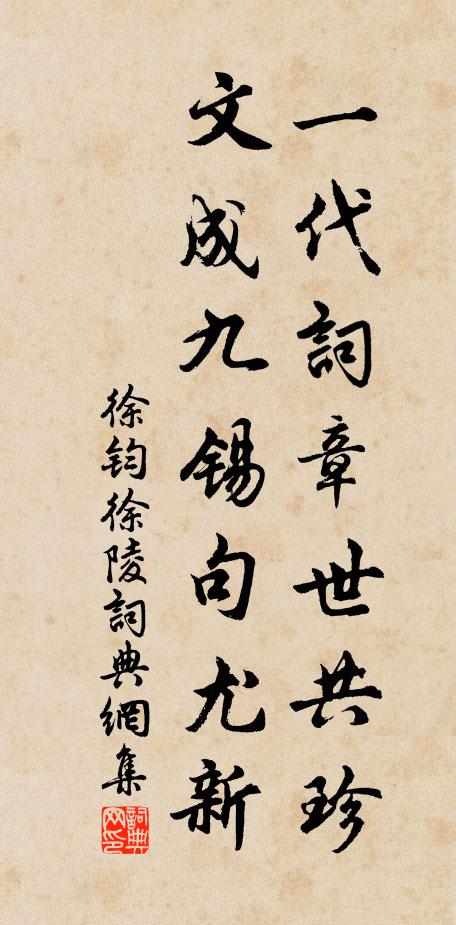 一代詞章世共珍
文成九锡句尤新
徐钧徐陵詞典網集
詞典網印